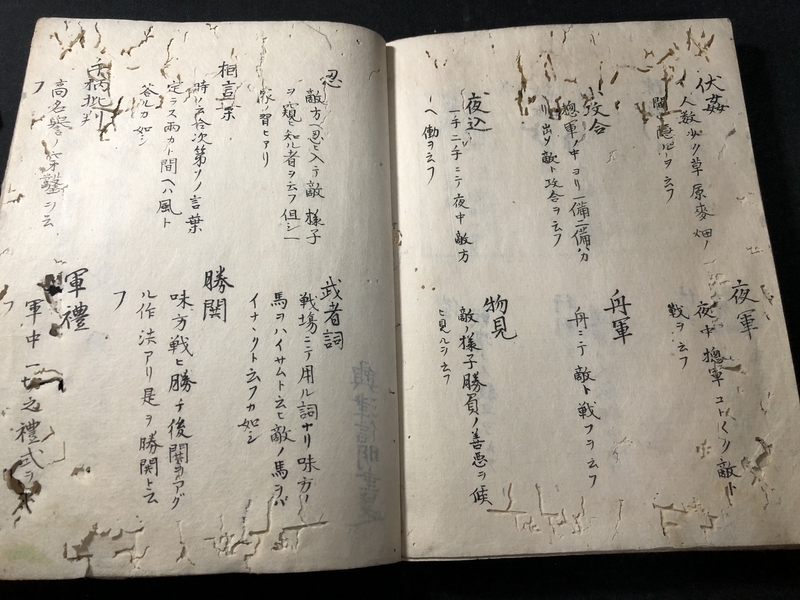 伏姦
人数少ク草原麥畑ノ
間ニ隠ルヽヲ云フ
小攻合
惣軍ノ中ヨリ一備二備分
リ出メ敵ト攻合ヲ云フ
夜込
一手二手ニテ夜中敵方
ヘ働ヲ云フ
夜軍
夜中惣軍コトくク敵ト
戦ヲ云フ
舟軍
舟ニテ敵ト戦フヲ云フ
物見
敵ノ様子勝負ノ善悪ヲ候
ヒ見ルヲ云フ
忍
敵方ヘ忍ヒ入テ敵ノ様子
ヲ窺ヒ知ル者ヲ云フ但シ一
ノ習ヒアリ
相言葉
時ノ云合次第ソノ言葉
定ラス雨カト間ヘハ風ト
答ルカ如シ
手柄批判
高名誉ノ ヲ云
フ
武者詞
戦場ニテ用ル詞ナリ味方ノ
馬ヲハイサムト云ヒ敵ノ馬ヲバ
イナヽクト云フカ如シ
勝関
味方戦ヒ勝テ後関ヲアグ
ル作法アリ是ヲ勝関ト云
フ
軍禮
軍中一切之禮式ヲ云
フ